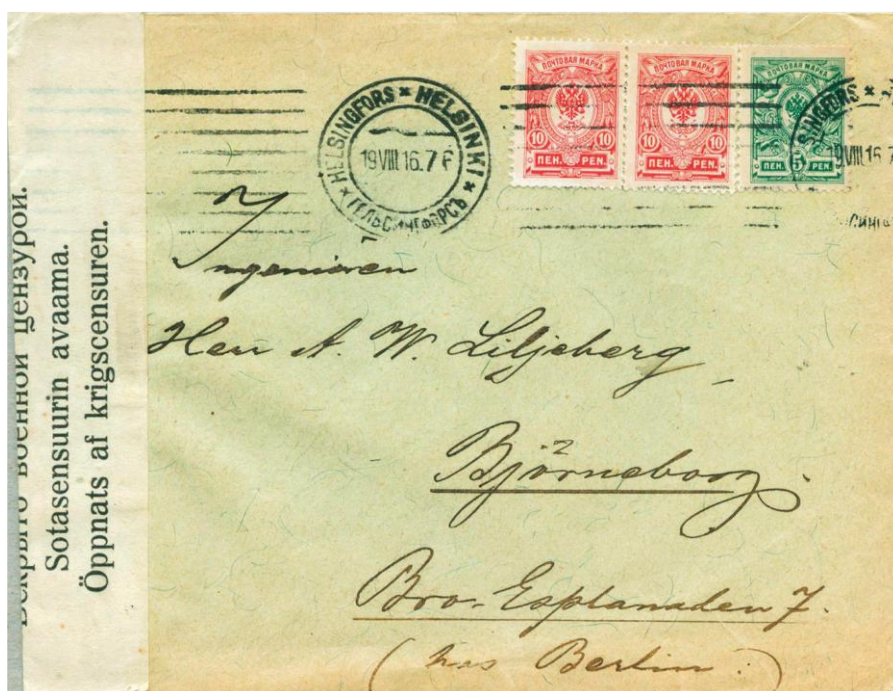 Вскрыто военной цензурой.
Sotasensuurin avaama.
Öppnats af krigscensuren.
HELSINGFORS * HELSINKI * ГЕЛЬСИНГФОРСЪ *
19 VIII.16.7
ПОЧТОВАЯ МАРКА
10 10
ПЕН. PEN.
ПОЧТОВАЯ МАРКА
10 10
ПЕН. PEN.
ПОЧТОВАЯ МАРКА
ПЕН. 5 PEN.
SINGFORS *
19 VIII.16.7
СИНГФ
Ingeniören
Herr A. W. Liljeberg
Björneborg.
Bro-Esplanaden 7.
(hos Berlin.)